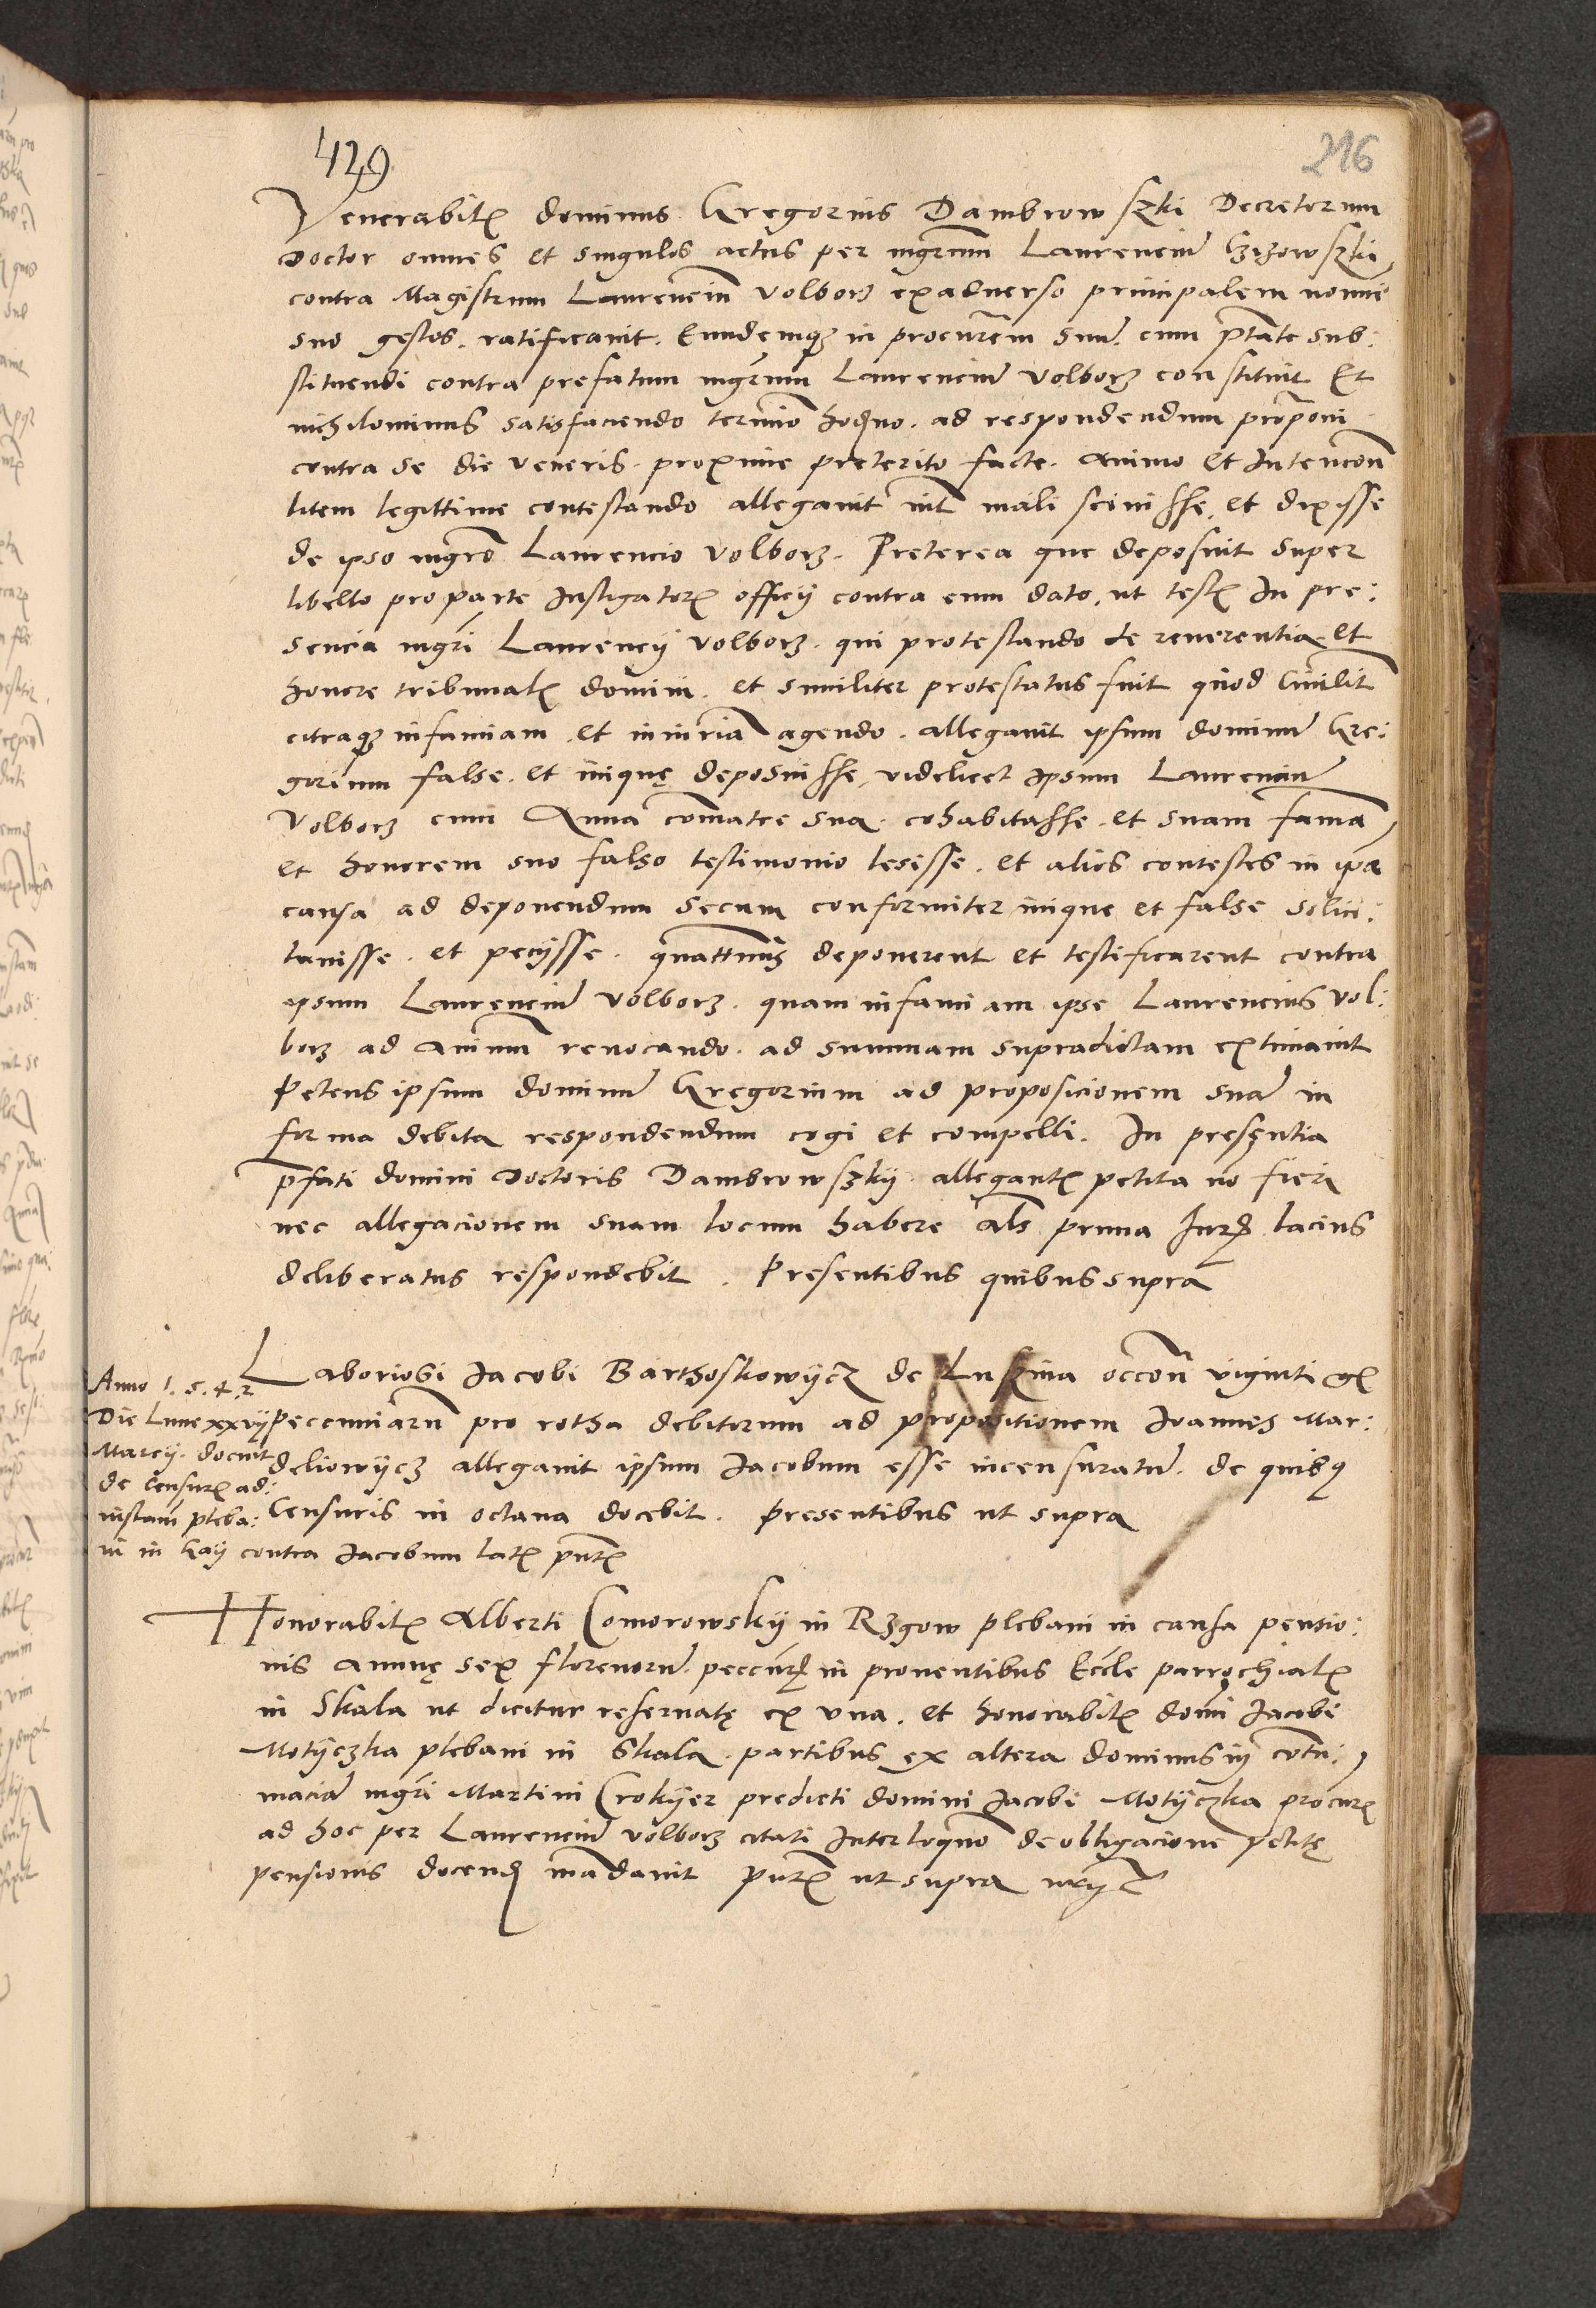 429
216
Venerabilis dominus Gregorius Dambrowszki Decretorum
Doctor omnes et singulos actus per mgrum Laurenciũ Czizowszki
contra Magistrum Laurenciũ Volborz exadverso principalem nomie
suo gestos. ratificavit. Eundemq in procurẽm suũ. cum ptate sub:
stituendi contra prefatum mgrum Laurenciũ Volborz constituit Et
nichilominus satisfaciendo termino hodierno. ad respondendum propõni
contra se die veneris. proxime preterito facte. Animo et Intencõn
litem legittime contestando allegavit nil mali scivisse. et dixisse
de ipso mgro Laurencio Volborz. Preterea que deposuit super
libello pro parte Instigatoris officij contra eum dato, ut testis In pre:
sencia mgri Laurencij Volborz. qui protestando de reverentia et
honore tribunalis domini. et similiter protestatus fuit quod Civilit
citraq infamiam et iniuriã agendo. allegavit ipsum dominũ Gre:
gorium false. et inique deposuisse, videlicet ipsum Laurenciũ
Volborz cum Anna comatre sua cohabitasse. et suam famã
et honorem suo falso testimonio lesisse. et alios contestes in ipa
causa ad deponendum secum conformiter inique et false solici:
tavisse. et pecijsse. quattenus deponerent et testificarent contra
ipsum Laurenciũ Volborz. quam infamiam ipse Laurencius Vol:
borz ad animum revocando. ad summam supradictam extimavit
Petens ipsum dominũ Gregorium ad proposicionem suã in
forma debita respondendum cogi et compelli. In presentia
pfati domini Doctoris Dambrowszkij allegantis petita nõ fieri
nec allegacionem suam locum habere als prima Jurid. lacius
deliberatus respondebit. Presentibus quibus supra
Laboriosi Jacobi Barthoskowijcz de occõni viginti
pecuniarũ pro rotha debitorum ad propositionem Joannes Mar:
deliowijcz allegavit ipsum Jacobum esse incensuratũ. de quibq
Censuris in octava docebit. Presentibus ut supra
Anno 1.5.4.2
Die Lune xxvij
Marcij. docuit
de Censuris ad:
instam pleba:
ni in contra Jacobum latis pntis
Honorabilis Alberti Comorowskij in Rzgow plebani in causa pensio:
nis annue sex florenorũ in proventibus Eccle parrochialis
in Skala ut dicitur reservate ex una. et honorabilis domi Jacobi
Motijczka plebani in Skala. partibus ex altera dominus in contu:
maciã mgri Martini Crokijer predicti domini Jacobi Motijczka procuris
ad hoc per Laurenciũ Volborz citati Interloquẽo de obligacione petite
pensionis docend mãdavit pntis ut supra